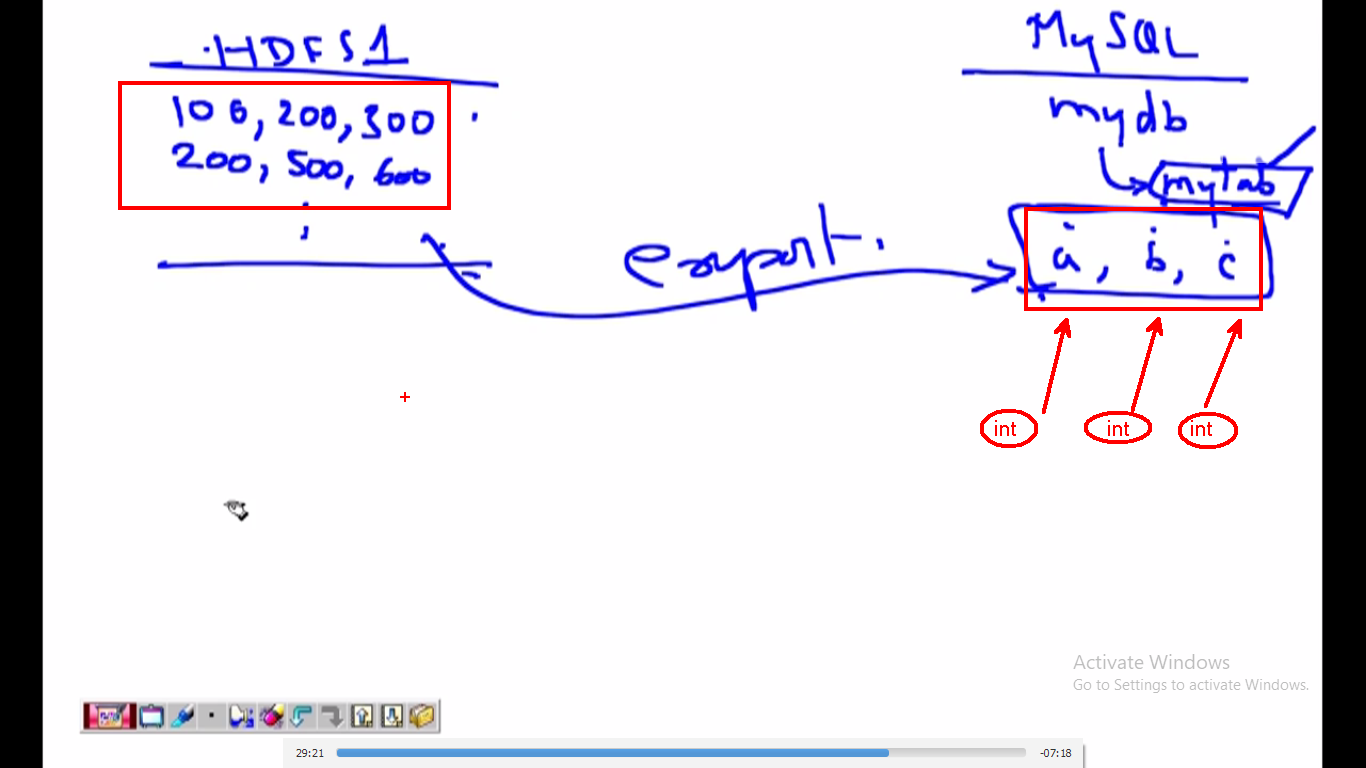 HDFS1
100, 200, 300
200, 500, 600
MySQL
mydb
mytab
export.
a, b, c
int int int
Activate Windows
Go to Settings to activate Windows.
29:21
-07:18